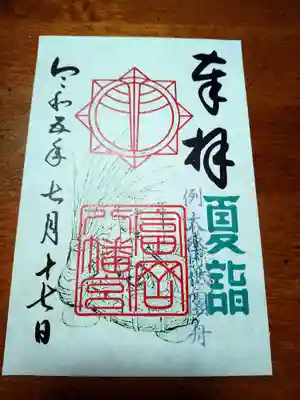 奉拝
夏詣
例
舟
富岡
八幡宮
令和五年七月十七日